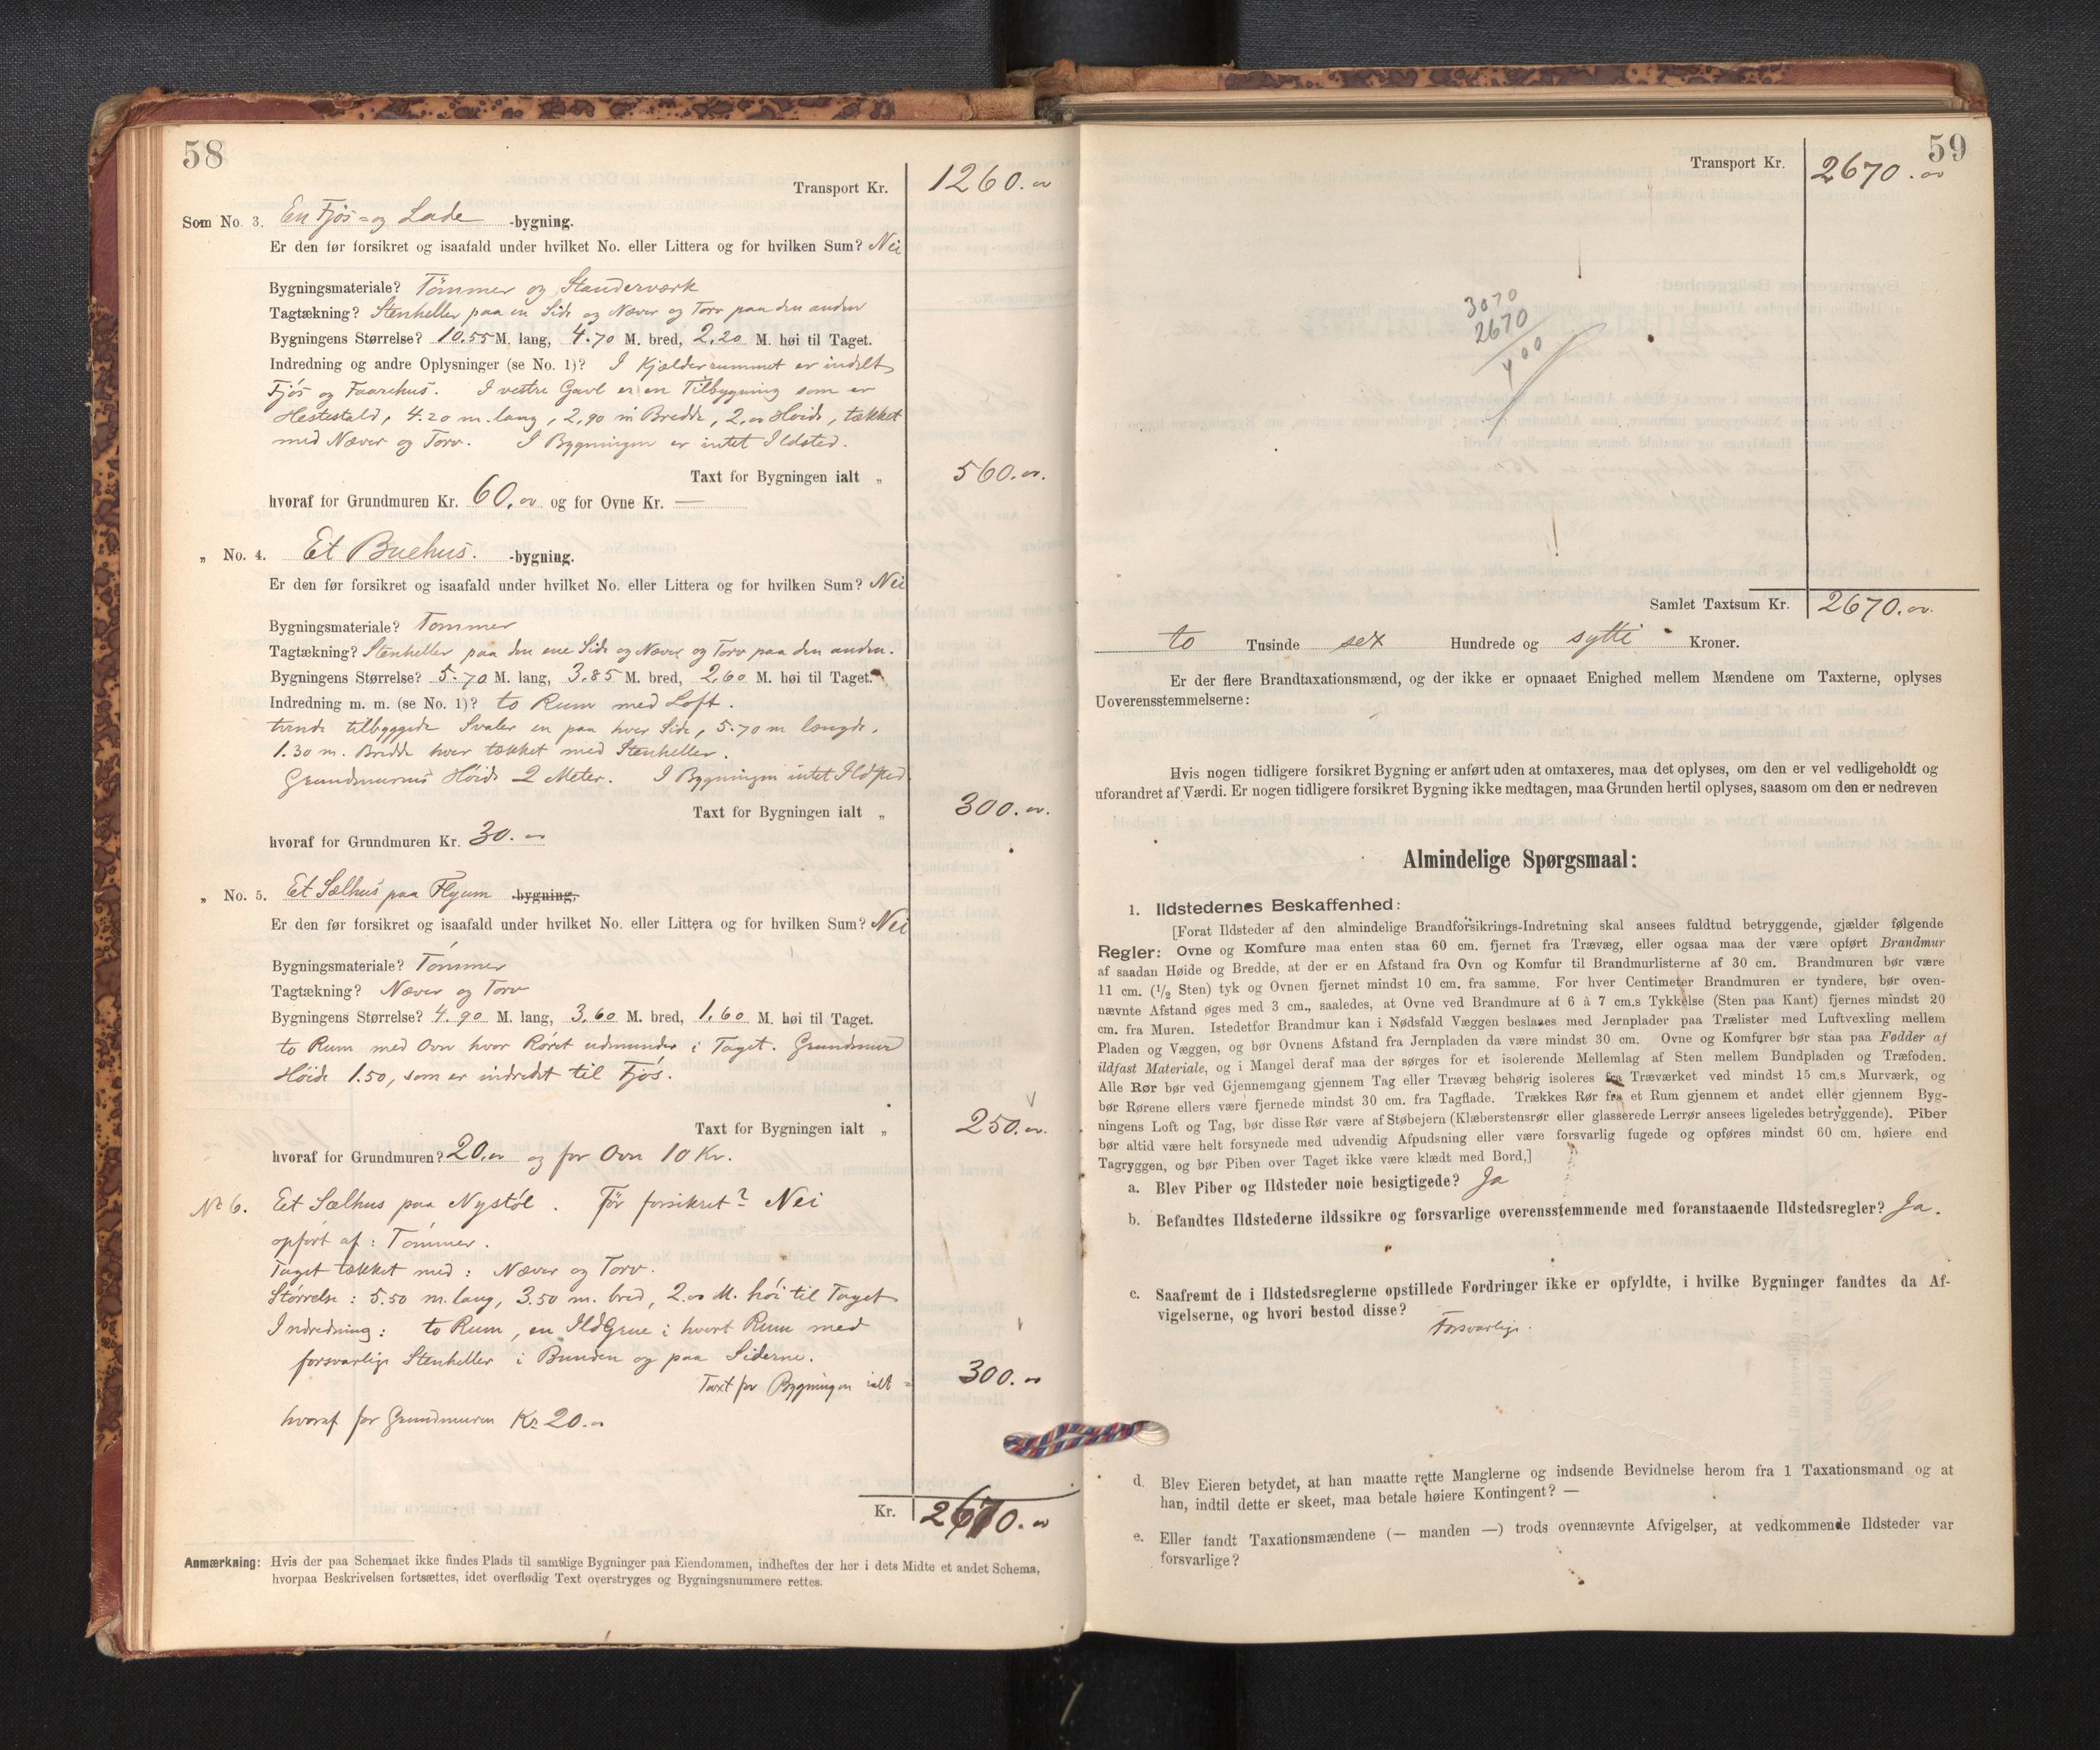 58
Transport Kr. 1260.00
Som No. 3. En Fjøs- og Lade -bygning.
Er den før forsikret og isaafald under hvilket No. eller Littera og for hvilken Sum? Nei
Bygningsmateriale? Tömmer og Standerværk
Tagtækning? Stenheller paa en Side og Næver og Torv paa den anden
Bygningens Størrelse? 10.55 M. lang, 4.70 M. bred, 2.20 M. høi til Taget.
Indredning og andre Oplysninger (se No. 1)? I Kjælderrummet er indelt
Fjös og Faarehus. I vestre Gavl er en Tilbygning som er
Hestestald, 4.20 m. lang, 2,90 m Bredde, 2,00 Høide, tækket
med Næver og Torv. I Bygningen er intet Ildsted.
Taxt for Bygningen ialt „ 560.00.
hvoraf for Grundmuren Kr. 60,00 og for Ovne Kr. —
„ No. 4. Et Buehus. -bygning.
Er den før forsikret og isaafald under hvilket No. eller Littera og for hvilken Sum? Nei
Bygningsmateriale? Tommer
Tagtækning? Stenheller paa den ene Side og Næver og Torv paa den anden.
Bygningens Størrelse? 5.70 M. lang, 3.85 M. bred, 2,60 M. høi til Taget.
Indredning m. m. (se No. 1)? to Rum med Loft.
tvende tilbyggede Svaler en paa hver Side, 5.70 m længde,
1.30 m. Bredde hver tækket med Stenheller.
Grundmurens Höide 2 Meter. I Bygningen intet Ildsted.
Taxt for Bygningen ialt „ 300.00.
hvoraf for Grundmuren Kr. 30.00
„ No. 5. Et Sælhus paa Flyum -bygning.
Er den før forsikret og isaafald under hvilket No. eller Littera og for hvilken Sum? Nei
Bygningsmateriale? Tömmer
Tagtækning? Næver og Torv
Bygningens Størrelse? 4.90 M. lang, 3,60 M. bred, 1.60 M. høi til Taget.
to Rum med Ovn hvor Röret udmunder i Taget. Grundmur
Höide 1.50, som er indredet til Fjös.
Taxt for Bygningen ialt „ 250.00.
hvoraf for Grundmuren? 20.00 og for Ovn 10 Kr.
No 6. Eet Sælhus paa Nystöl. För forsikret? Nei
opfört af: Tömmer.
Taget tækket med: Næver og Torv.
Störrelse: 5.50 m. lang, 3.50 m. bred, 2.00 M. höi til Taget
Indredning: to Rum, en IldGrue i hvert Rum med
forsvarlige Stenheller i Bunden og paa Siderne.
Taxt for Bygningen ialt = 300.00
hvoraf for Grundmuren Kr 20.00
Kr. 2670.00
Anmærkning: Hvis der paa Schemaet ikke findes Plads til samtlige Bygninger paa Eiendommen, indheftes der her i dets Midte et andet Schema,
hvorpaa Beskrivelsen fortsættes, idet overflødig Text overstryges og Bygningsnummere rettes.
59
Transport Kr. 2670.00
3070
2670
400
Samlet Taxtsum Kr. 2670.00.
to Tusinde sex Hundrede og sytti Kroner.
Er der flere Brandtaxationsmænd, og der ikke er opnaaet Enighed mellem Mændene om Taxterne, oplyses
Uoverensstemmelserne:
Hvis nogen tidligere forsikret Bygning er anført uden at omtaxeres, maa det oplyses, om den er vel vedligeholdt og
uforandret af Værdi. Er nogen tidligere forsikret Bygning ikke medtagen, maa Grunden hertil oplyses, saasom om den er nedreven
Almindelige Spørgsmaal:
1. Ildstedernes Beskaffenhed:
[Forat Ildsteder af den almindelige Brandforsikrings-Indretning skal ansees fuldtud betryggende, gjælder følgende
Regler: Ovne og Komfure maa enten staa 60 cm. fjernet fra Trævæg, eller ogsaa maa der være opført Brandmur
af saadan Høide og Bredde, at der er en Afstand fra Ovn og Komfur til Brandmurlisterne af 30 cm. Brandmuren bør være
11 cm. (1/2 Sten) tyk og Ovnen fjernet mindst 10 cm. fra samme. For hver Centimeter Brandmuren er tyndere, bør oven-
nævnte Afstand øges med 3 cm., saaledes, at Ovne ved Brandmure af 6 à 7 cm.s Tykkelse (Sten paa Kant) fjernes mindst 20
cm. fra Muren. Istedetfor Brandmur kan i Nødsfald Væggen beslaaes med Jernplader paa Trælister med Luftvexling mellem
Pladen og Væggen, og bør Ovnens Afstand fra Jernpladen da være mindst 30 cm. Ovne og Komfurer bør staa paa Fødder af
ildfast Materiale, og i Mangel deraf maa der sørges for et isolerende Mellemlag af Sten mellem Bundpladen og Træfoden.
Alle Rør bør ved Gjennemgang gjennem Tag eller Trævæg behørig isoleres fra Træværket ved mindst 15 cm.s Murværk, og
bør Rørene ellers være fjernede mindst 30 cm. fra Tagflade. Trækkes Rør fra et Rum gjennem et andet eller gjennem Byg-
ningens Loft og Tag, bør disse Rør være af Støbejern (Klæberstensrør eller glasserede Lerrør ansees ligeledes betryggende). Piber
bør altid være helt forsynede med udvendig Afpudsning eller være forsvarlig fugede og opføres mindst 60 cm. høiere end
Tagryggen, og bør Piben over Taget ikke være klædt med Bord,]
a. Blev Piber og Ildsteder nøie besigtigede? Ja
b. Befandtes Ildstederne ildssikre og forsvarlige overensstemmende med foranstaaende Ildstedsregler? Ja.
c. Saafremt de i Ildstedsreglerne opstillede Fordringer ikke er opfyldte, i hvilke Bygninger fandtes da Af-
vigelserne, og hvori bestod disse?
Forsvarlige.
d. Blev Eieren betydet, at han maatte rette Manglerne og indsende Bevidnelse herom fra 1 Taxationsmand og at
han, indtil dette er skeet, maa betale høiere Kontingent? —
e. Eller fandt Taxationsmændene (— manden —) trods ovennævnte Afvigelser, at vedkommende Ildsteder var
forsvarlige?